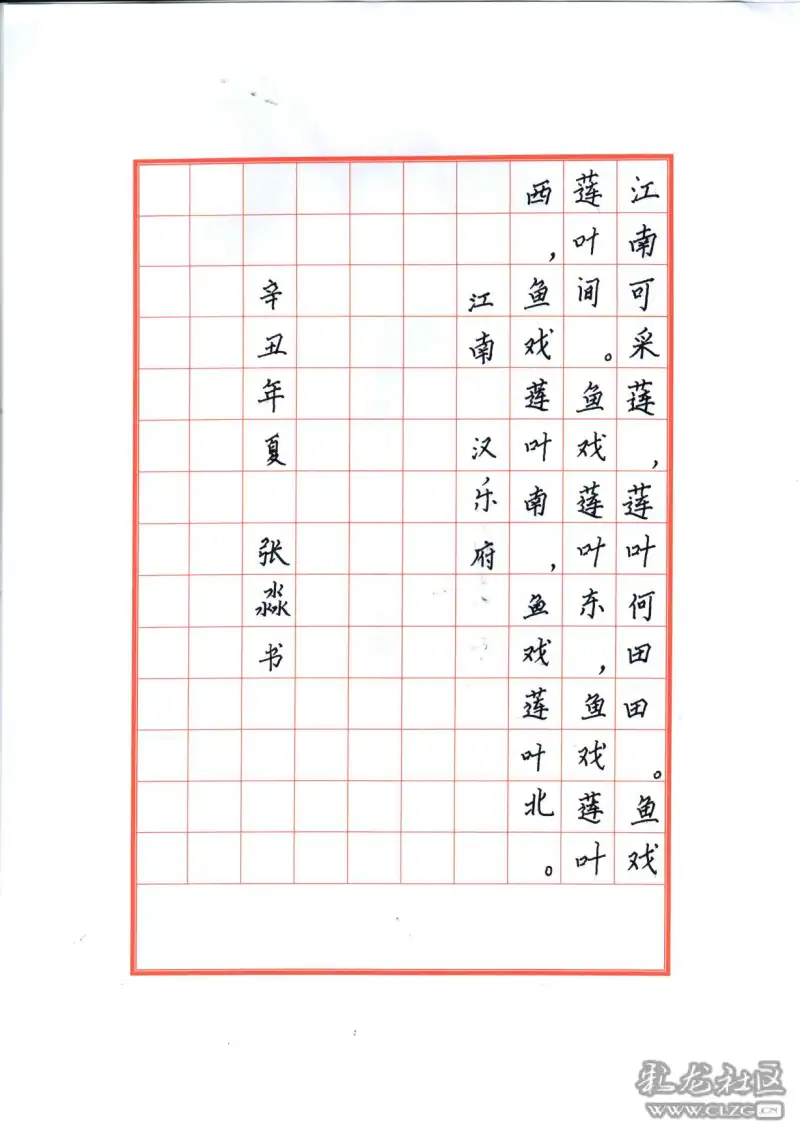 江南可采莲，莲叶何田田。鱼戏
莲叶间。鱼戏莲叶东，鱼戏莲叶
西，鱼戏莲叶南，鱼戏莲叶北。
江南 汉乐府
辛丑年夏 张淼书
乳龙社区
WWW.CLZG.CN